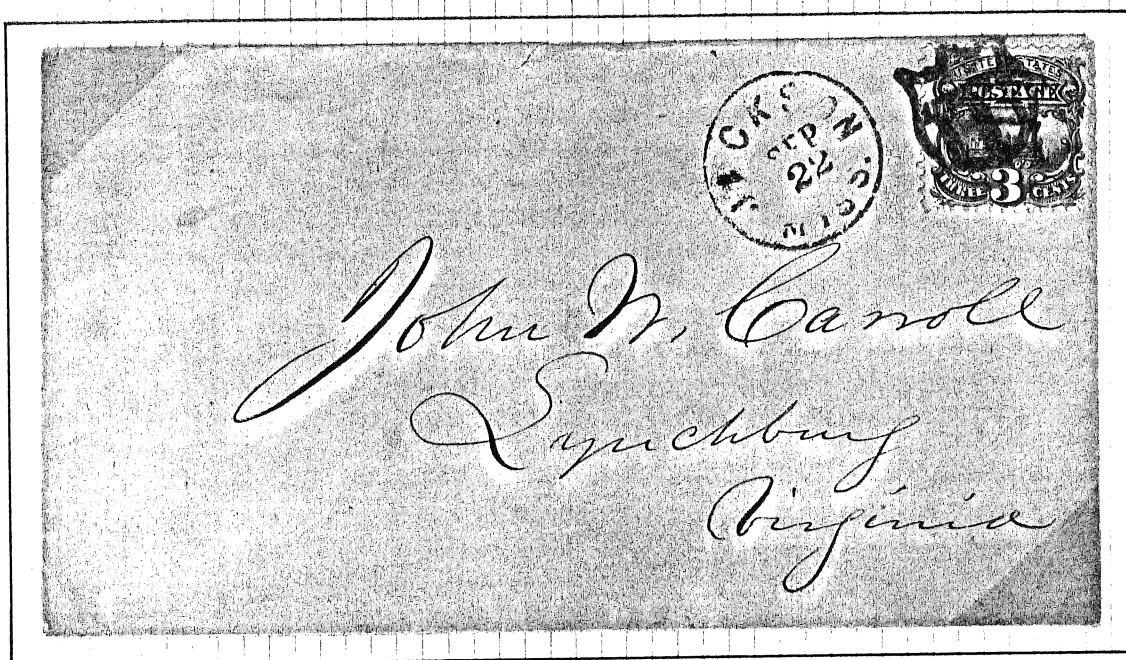 JACKSON
SEP
22
MISS.
UNITED STATES
POSTAGE
THREE 3 CENTS
John W. Carroll
Lynchburg
Virginia